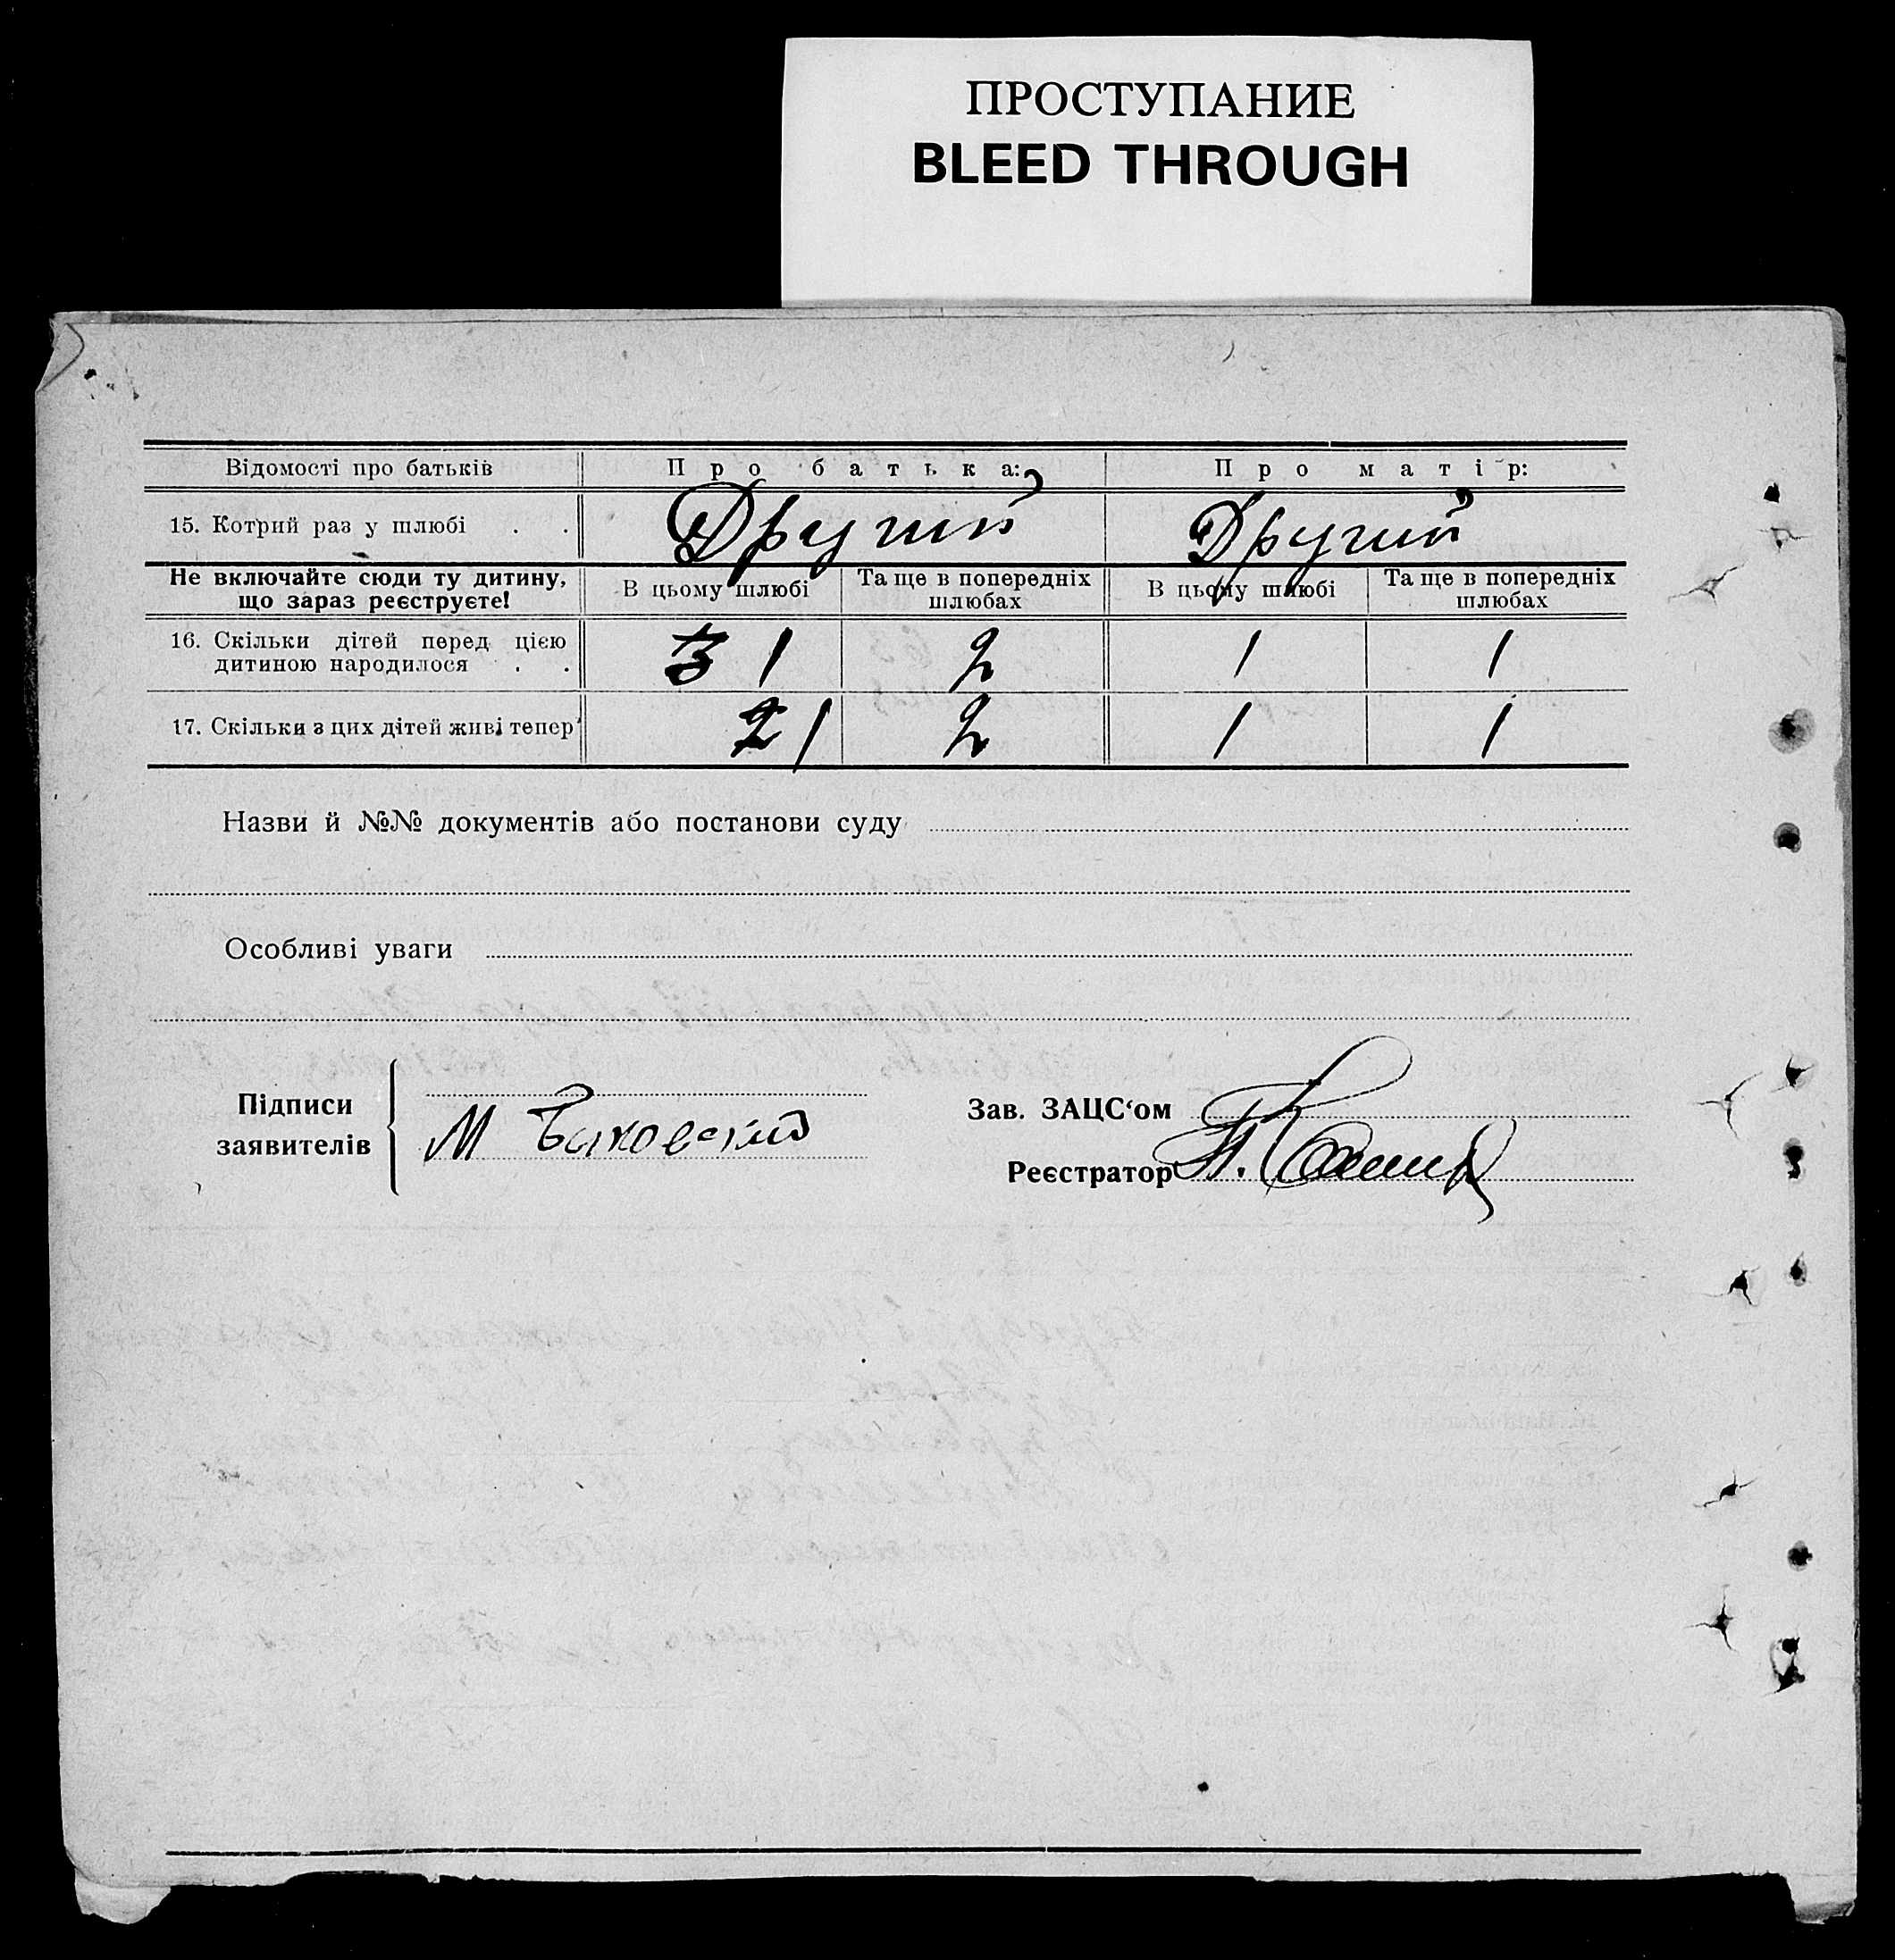 ПРОСТУПАНИЕ
BLEED THROUGH
Відомості про батьків Про батька: Про матір:
15. Котрий раз у шлюбі . . Другий Другий
Не включайте сюди ту дитину, що зараз реєструєте! В цьому шлюбі Та ще в попередніх шлюбах В цьому шлюбі Та ще в попередніх шлюбах
16. Скільки дітей перед цією дитиною народилося . . 3 1 2 1 1
17. Скільки з цих дітей живі тепер 2 1 2 1 1
Назви й №№ документів або постанови суду
Особливі уваги
Підписи заявителів М Быковский
Зав. ЗАЦС‘ом
Реєстратор